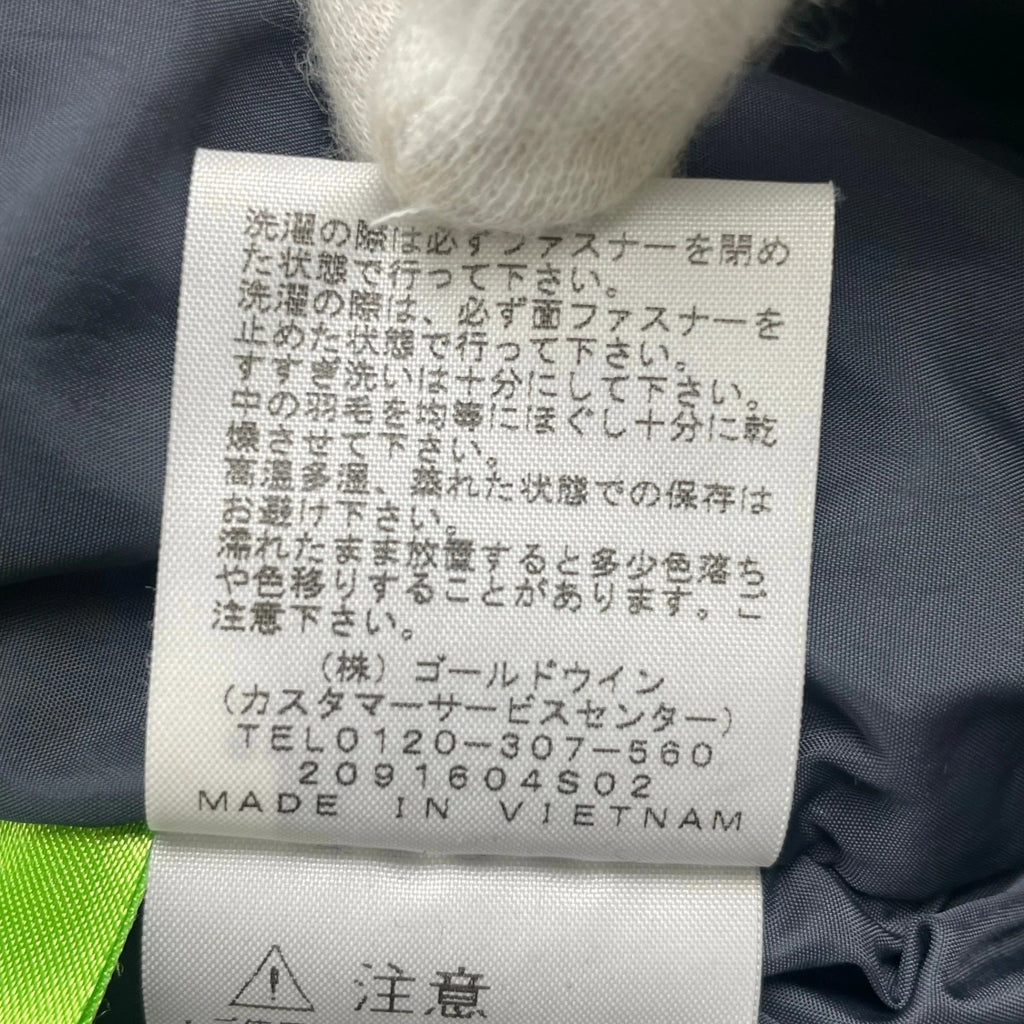 洗濯の際は必ずファスナーを閉め
た状態で行って下さい。
洗濯の際は、必ず面ファスナーを
止めた状態で行って下さい。
すすぎ洗いは十分にして下さい。
中の羽毛を均等にほぐし十分に乾
燥させて下さい。
高温多湿、蒸れた状態での保存は
お避け下さい。
濡れたまま放置すると多少色落ち
や色移りすることがあります。ご
注意下さい。
（株）ゴールドウイン
（カスタマーサービスセンター）
TEL0120-307-560
2091604S02
MADE IN VIETNAM
注意